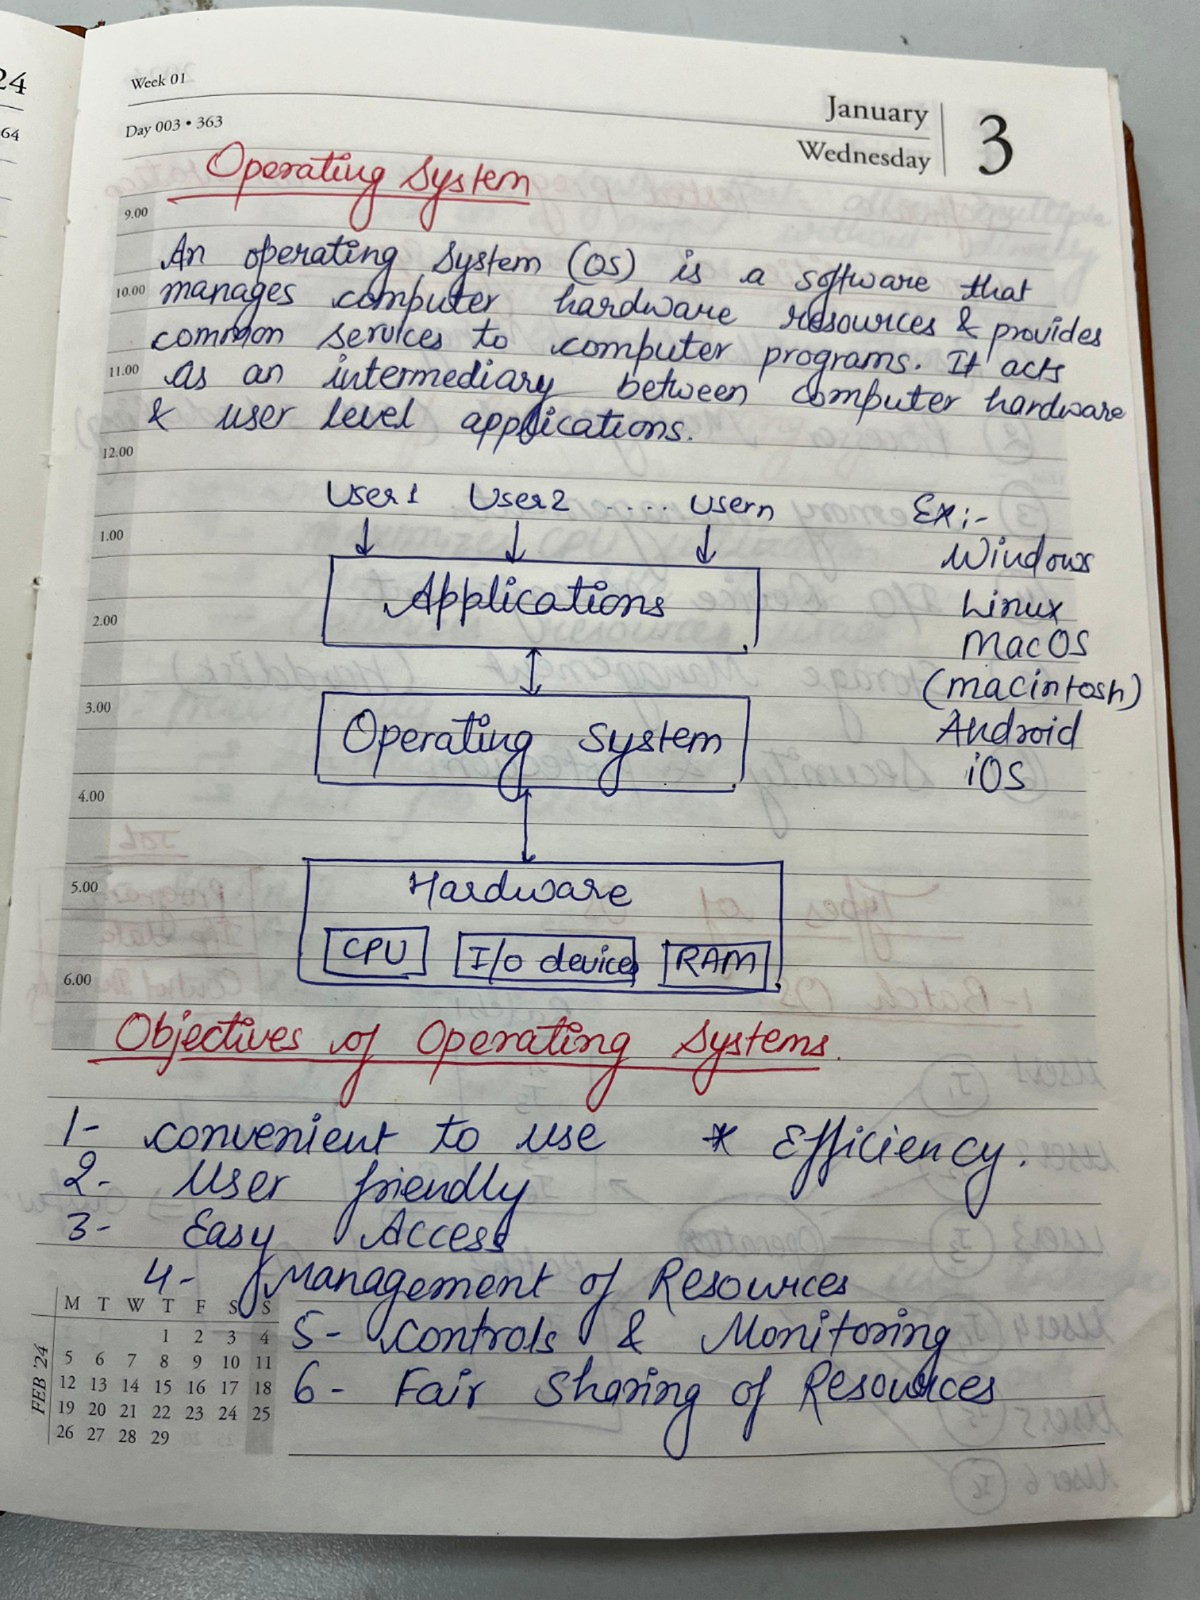 24
64
Week 01
Day 003 • 363
January
Wednesday
3
Operating System
9.00
An operating System (OS) is a software that
10.00
manages computer hardware resources & provides
common services to computer programs. It acts
11.00
as an intermediary between computer hardware
& user level applications.
12.00
User 1 User 2 ..... Usern
Ex:-
1.00
Windows
Applications
Linux
2.00
MacOS
(macintosh)
3.00
Android
Operating System
iOS
4.00
5.00
Hardware
CPU I/O device RAM
6.00
Objectives of Operating Systems.
1- convenient to use * Efficiency.
2- User friendly
3- Easy Access
4- Management of Resources
5- Controls & Monitoring
6- Fair Sharing of Resources
FEB '24
M T W T F S S
1 2 3 4
5 6 7 8 9 10 11
12 13 14 15 16 17 18
19 20 21 22 23 24 25
26 27 28 29